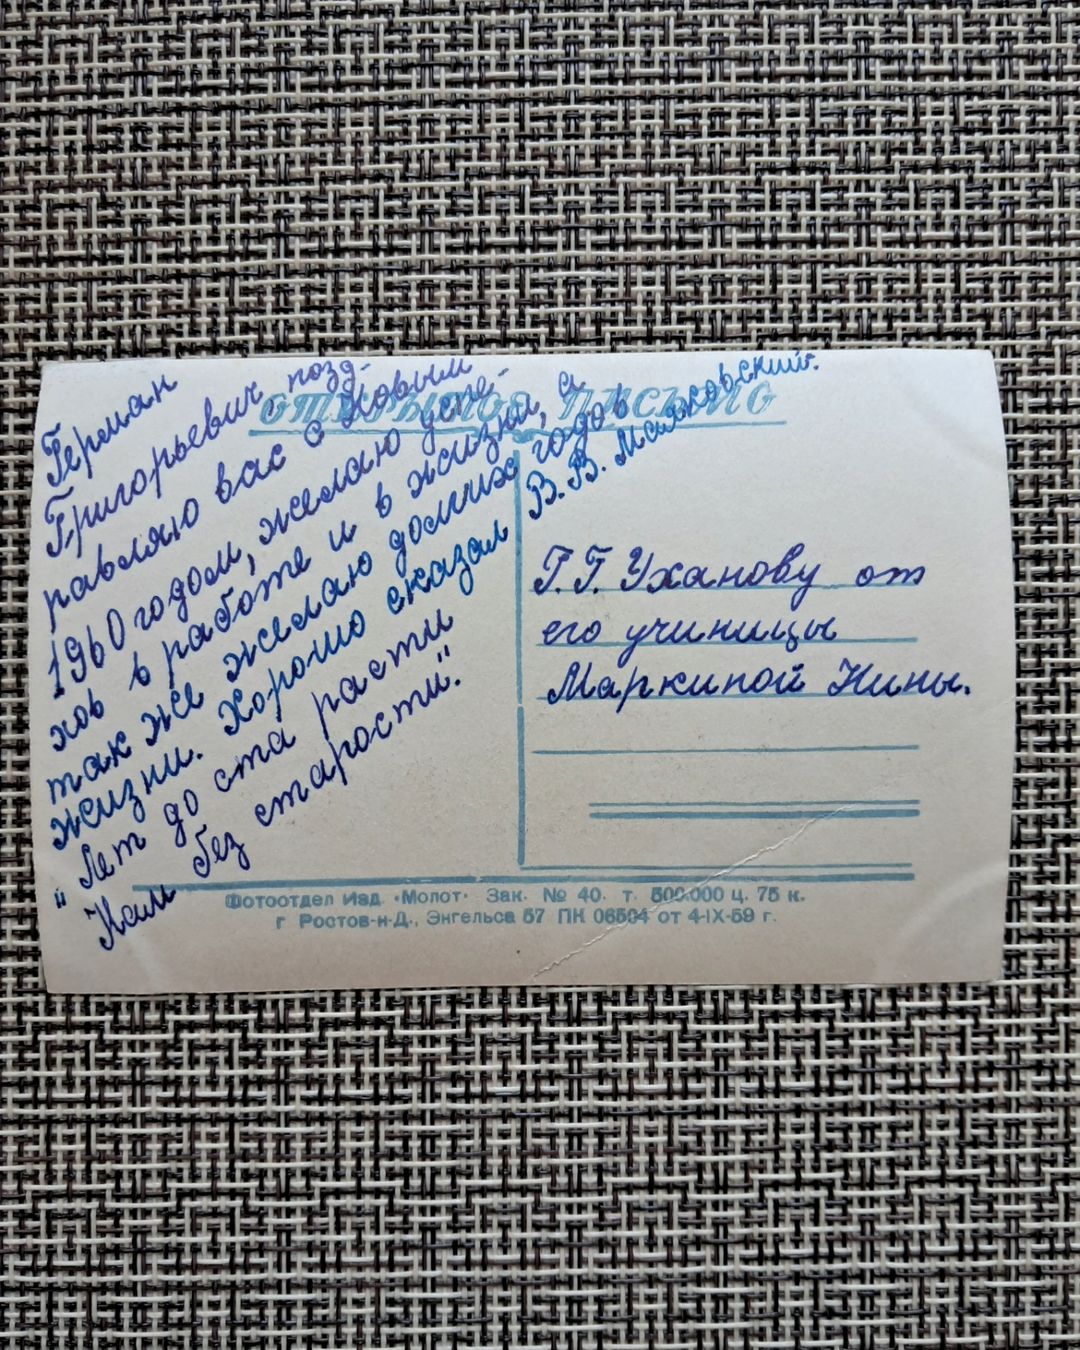 открытое письмо
Герман
Григорьевич, позд-
равляю вас с Новым
1960 годом, желаю успе-
хов в работе и в жизни, а
так же желаю долгих годов
жизни. Хорошо сказал В.В. Маяковский.
"Лет до ста расти
Нам без старости."
Г.Г. Уханову от
его учиницы
Маркиной Нины.
Фотоотдел Изд. «Молот» Зак. № 40. т. 500.000 ц. 75 к.
г Ростов-н-Д., Энгельса 57 ПК 06504 от 4-IX-59 г.